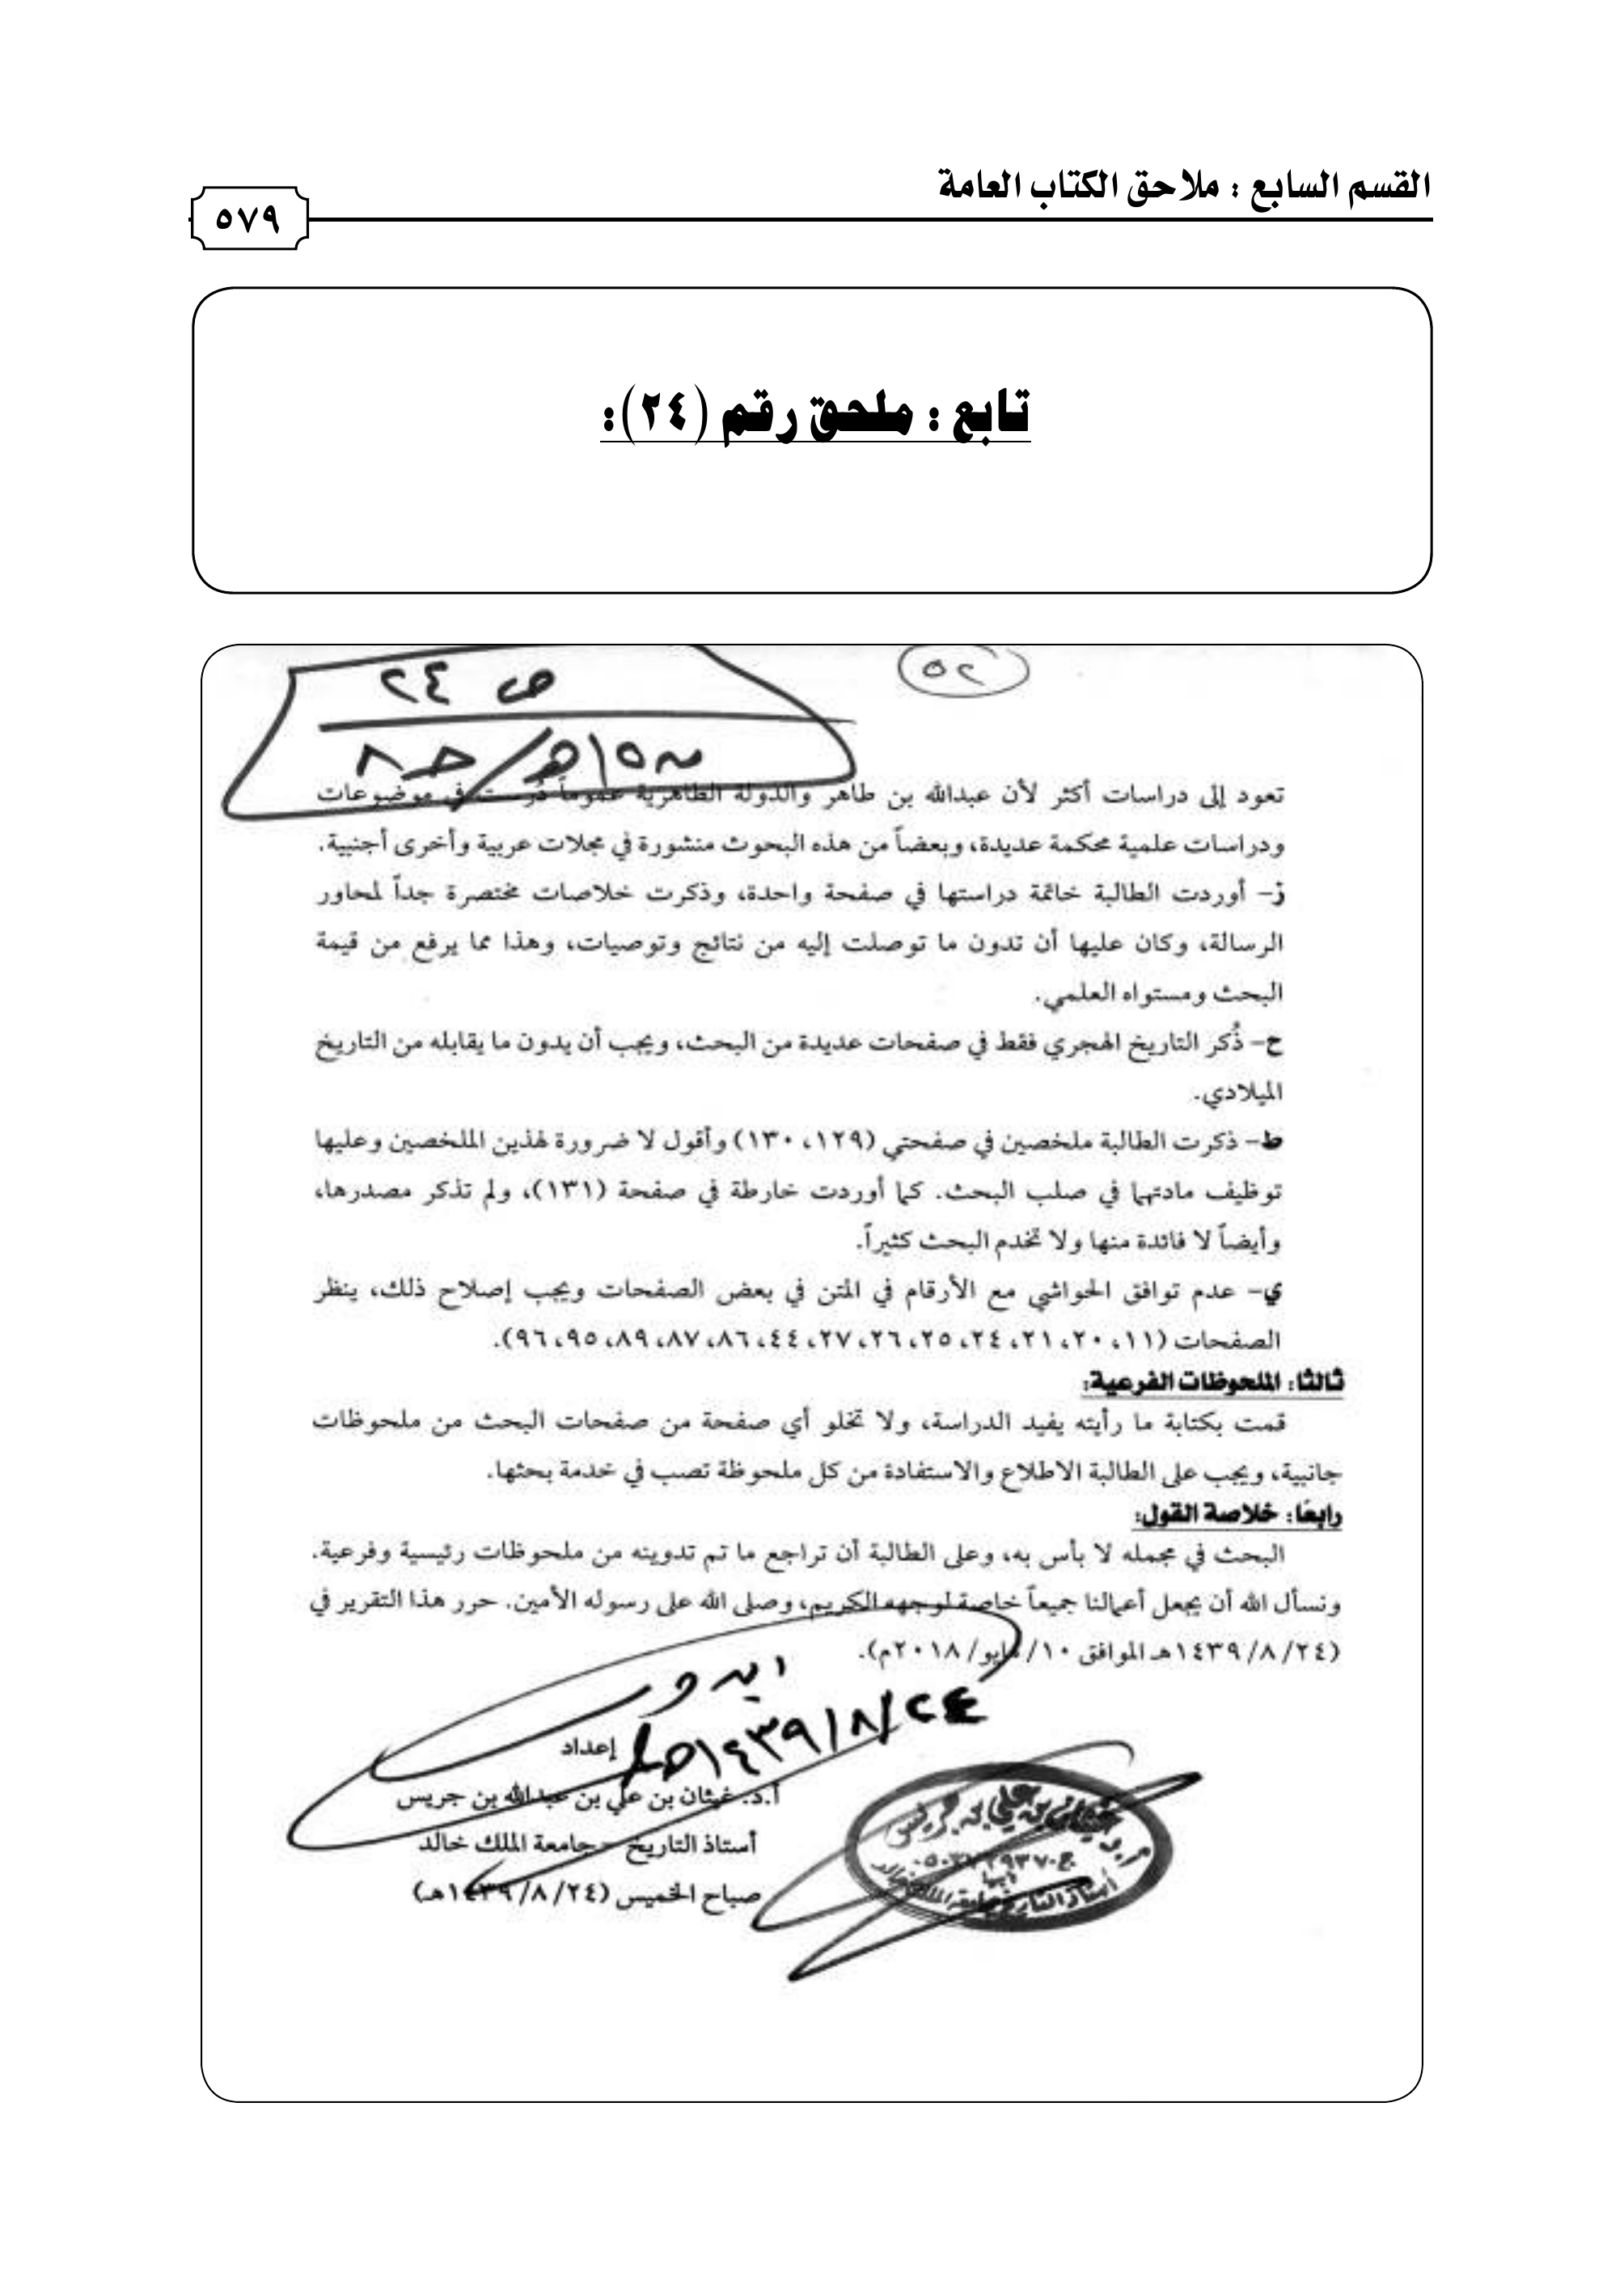 القسم السابع : ملاحق الكتاب العامة
٥٧٩
تابع : ملحق رقم (٢٤):
٥٢
ص ٢٤
تعود إلى دراسات أكثر لأن عبدالله بن طاهر والدولة الطاهرية عموماً دُرست في موضوعات
ودراسات علمية محكمة عديدة، وبعضاً من هذه البحوث منشورة في مجلات عربية وأخرى أجنبية.
ز- أوردت الطالبة خاتمة دراستها في صفحة واحدة، وذكرت خلاصات مختصرة جداً لمحاور
الرسالة، وكان عليها أن تدون ما توصلت إليه من نتائج وتوصيات، وهذا مما يرفع من قيمة
البحث ومستواه العلمي.
ح- ذُكر التاريخ الهجري فقط في صفحات عديدة من البحث، ويجب أن يدون ما يقابله من التاريخ
الميلادي.
ط- ذكرت الطالبة ملخصين في صفحتي (١٢٩، ١٣٠) وأقول لا ضرورة لهذين الملخصين وعليها
توظيف مادتهما في صلب البحث. كما أوردت خارطة في صفحة (١٣١)، ولم تذكر مصدرها،
وأيضاً لا فائدة منها ولا تخدم البحث كثيراً.
ي- عدم توافق الحواشي مع الأرقام في المتن في بعض الصفحات ويجب إصلاح ذلك، ينظر
الصفحات (١١، ٢٠، ٢١، ٢٤، ٢٥، ٢٦، ٢٧، ٤٤، ٨٦، ٨٧، ٨٩، ٩٥، ٩٦).
ثالثا: الملحوظات الفرعية:
قمت بكتابة ما رأيته يفيد الدراسة، ولا تخلو أي صفحة من صفحات البحث من ملحوظات
جانبية، ويجب على الطالبة الاطلاع والاستفادة من كل ملحوظة تصب في خدمة بحثها.
رابعًا: خلاصة القول:
البحث في مجمله لا بأس به، وعلى الطالبة أن تراجع ما تم تدوينه من ملحوظات رئيسية وفرعية.
ونسأل الله أن يجعل أعمالنا جميعاً خاصة لوجهه الكريم، وصلى الله على رسوله الأمين. حرر هذا التقرير في
(٢٤/ ٨/ ١٤٣٩هـ الموافق ١٠/ مايو/ ٢٠١٨م).
٢٤/٨/١٤٣٩هـ
إعداد
أ.د. غيثان بن علي بن عبدالله بن جريس
أستاذ التاريخ – جامعة الملك خالد
صباح الخميس (٢٤/ ٨/ ١٤٣٩هـ)